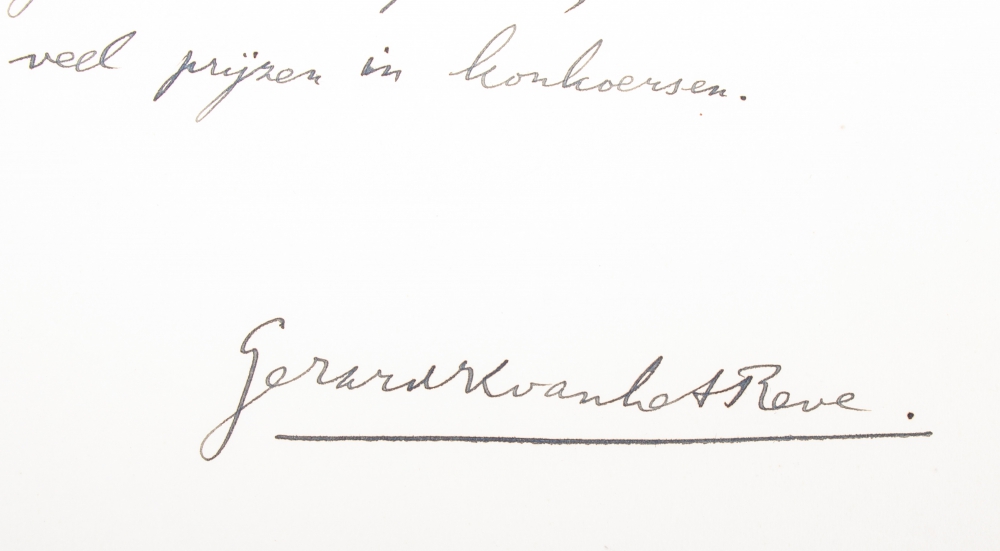 veel prijzen in konkoersen.
Gerard K van het Reve.